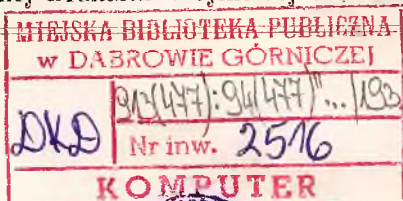 MIEJSKA BIBLIOTEKA PUBLICZNA
w DĄBROWIE GÓRNICZEJ
913(477):94(477)".../193
DKD
Nr inw. 2516
KOMPUTER